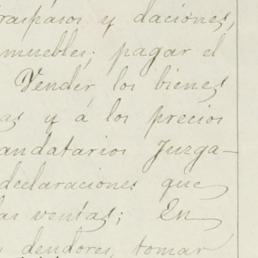 traspasos y daciones,
muebles; pagar el
Vender los bienes
as y á los precios
andatarios Juzga-
declaraciones que
las ventas; En
deudores, tomar